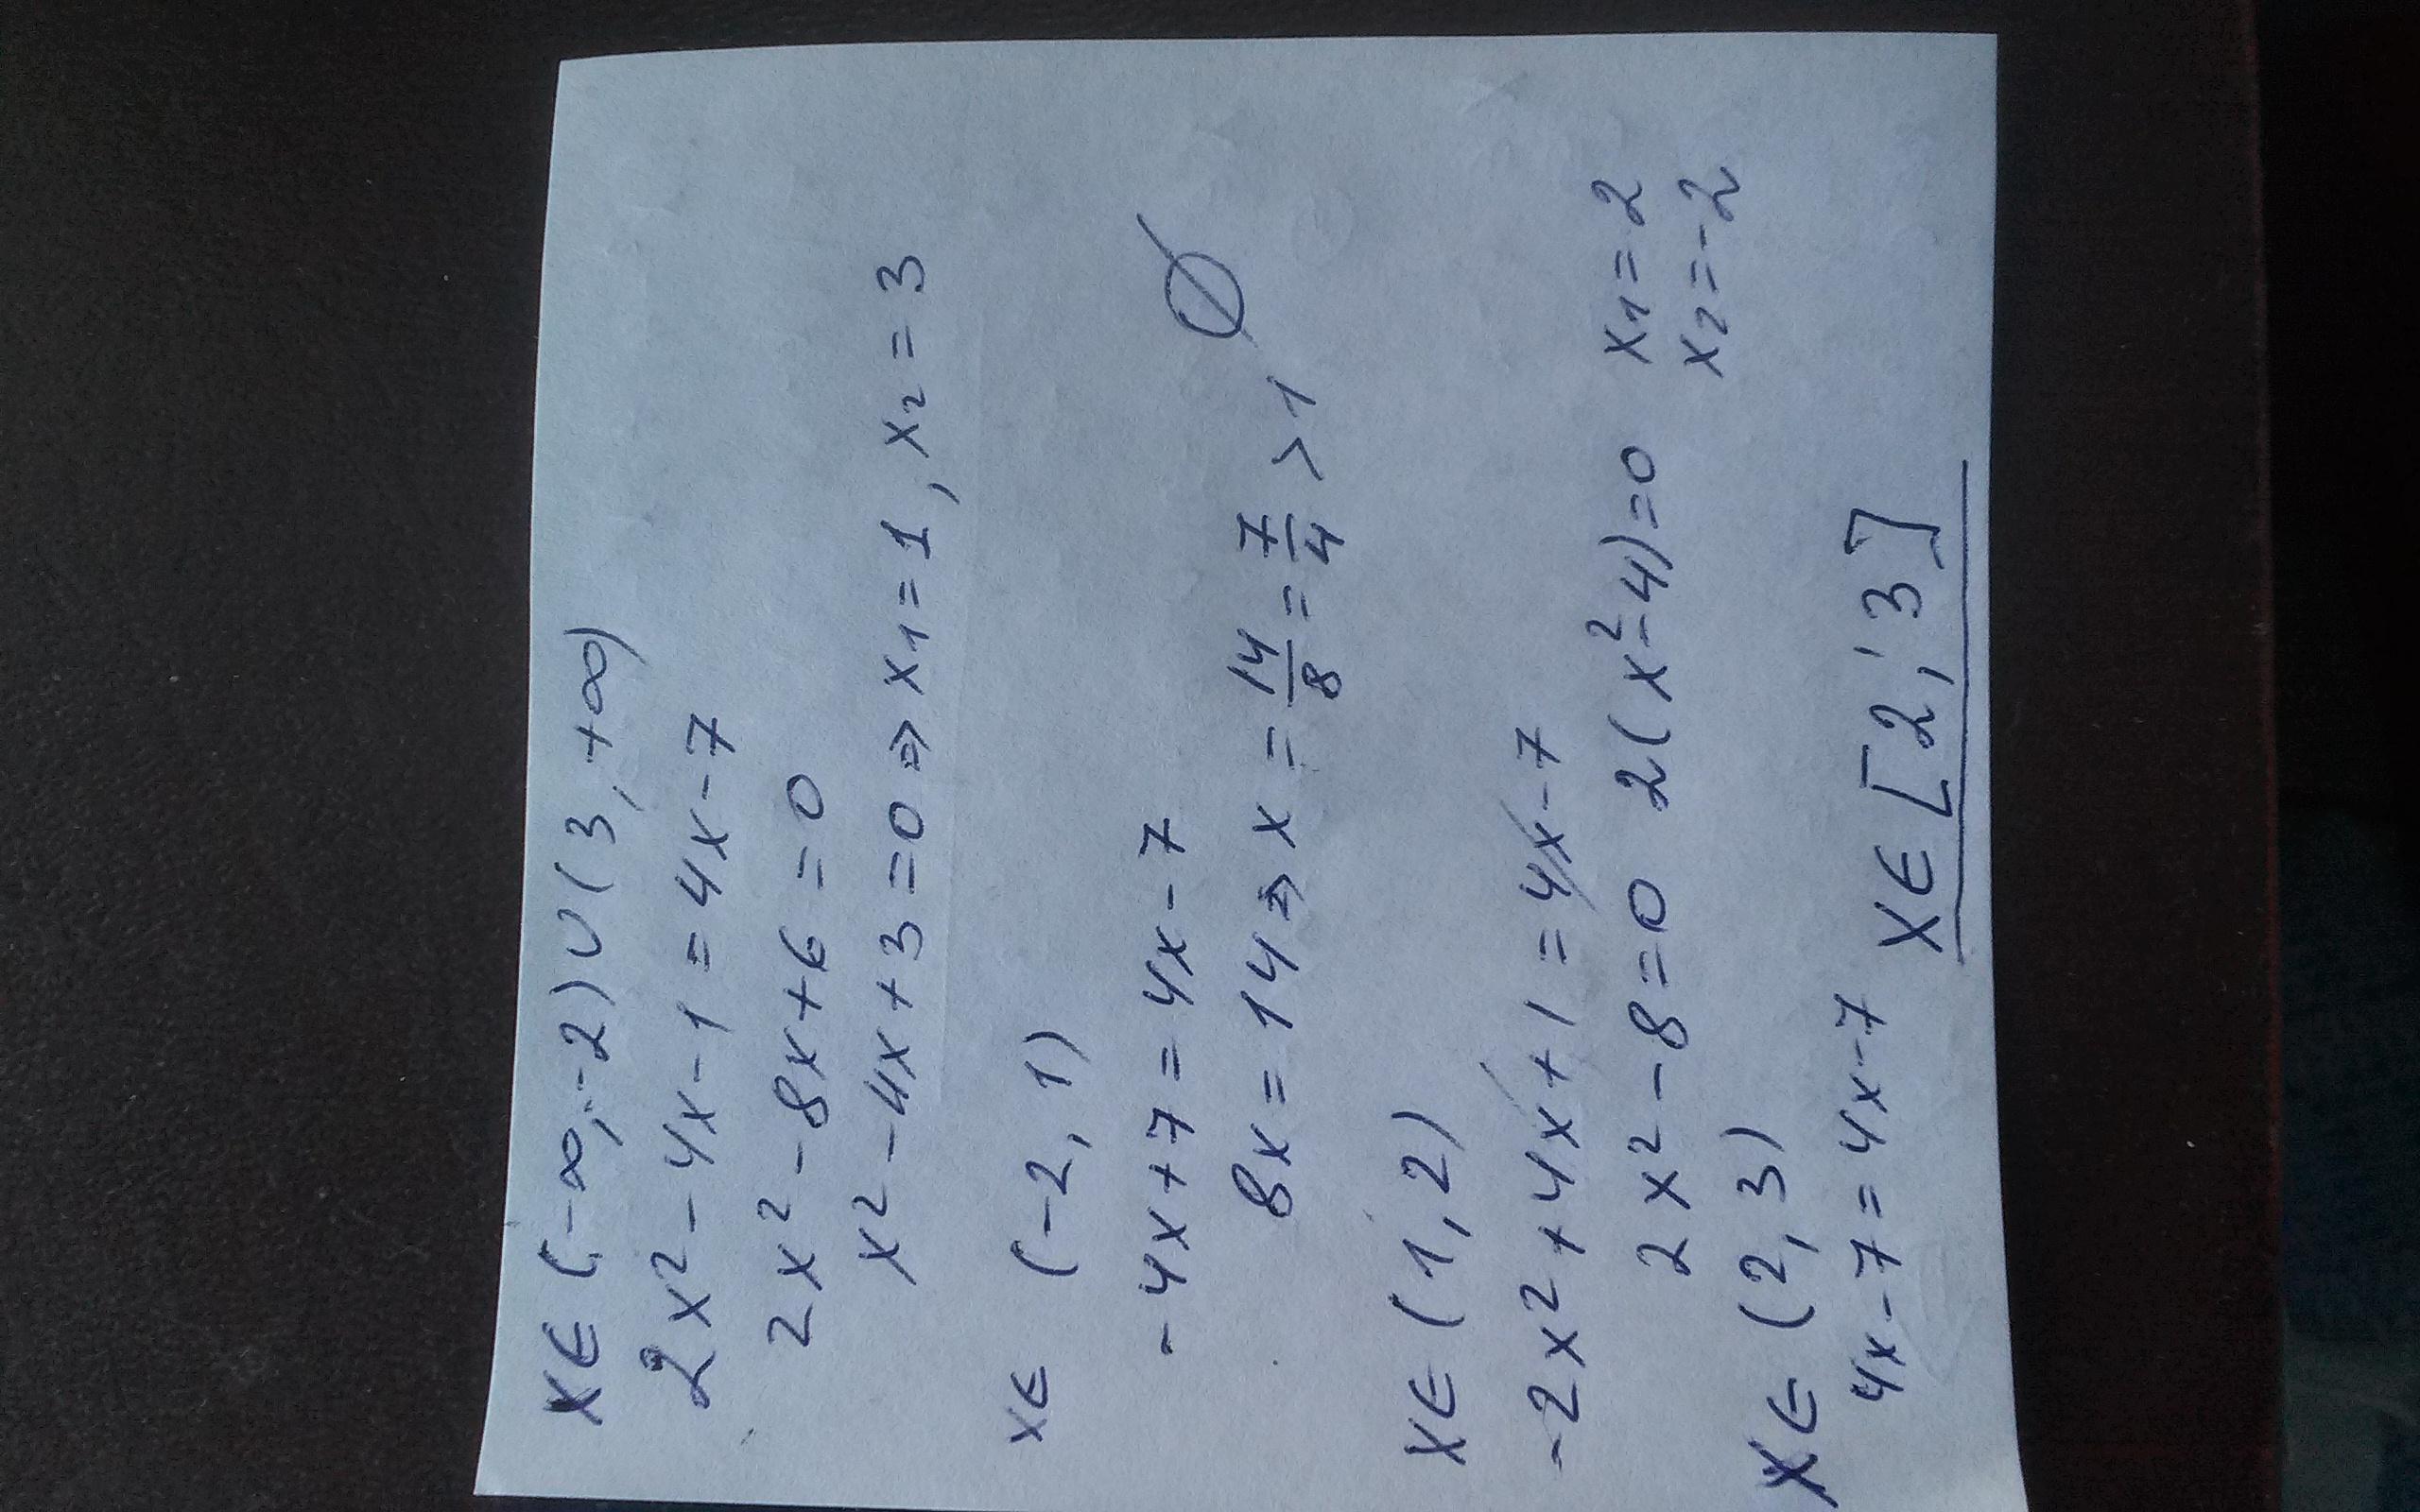 x∈(-∞;-2)∪(3,+∞)
2x²-4x-1=4x-7
2x²-8x+6=0
x²-4x+3=0⇒x₁=1, x₂=3
x∈ (-2,1)
-4x+7=4x-7
8x=14⇒x=14/8=7/4>1 ∅
x∈(1,2)
-2x²+4x+1=4x-7
2x²-8=0 2(x²-4)=0 x₁=2
x₂=-2
x∈(2,3)
4x-7=4x-7 x∈[2;3]